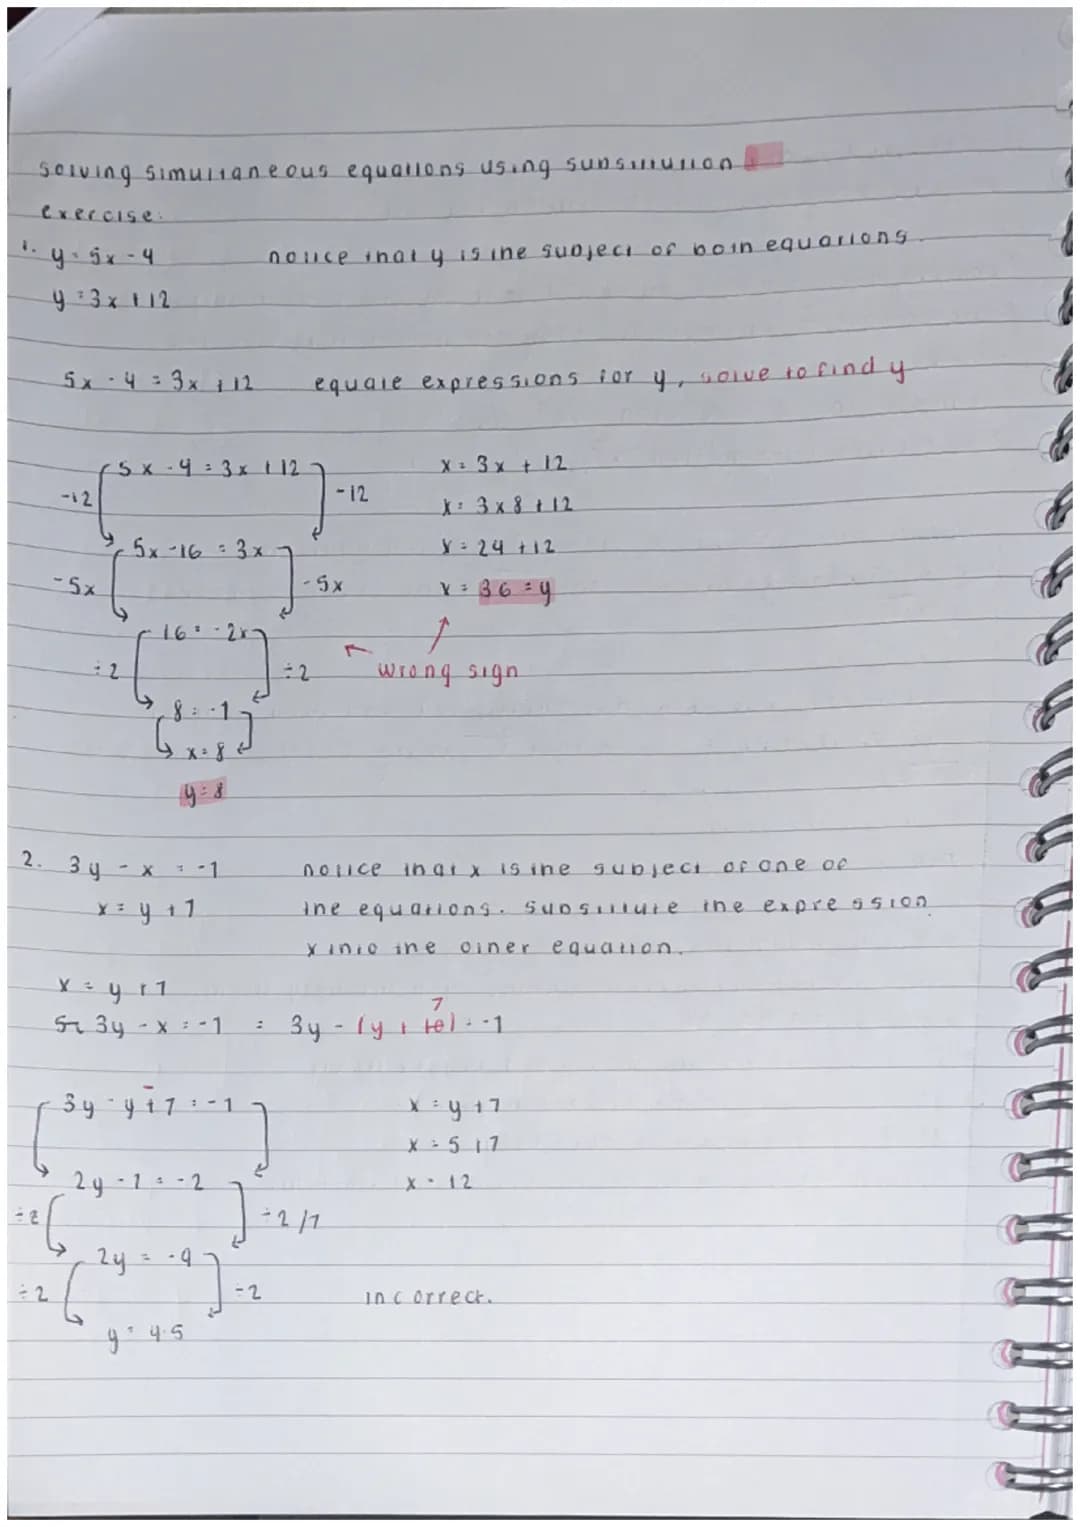 solving simultaneous equations using subsitution
exercise:
1. y = 5x - 4 notice that y is the subject of both equations.
y = 3x + 12
5x - 4 = 3x + 12 equate expressions for y, solve to find y
5x - 4 = 3x + 12 x = 3x + 12
-12 -12
x = 3 x 8 + 12
5x - 16 = 3x x = 24 + 12
-5x -5x x = 36 = y
16 = -2x
÷2 ÷2 wrong sign
8 = -1
x = 8
y = 8
2. 3y - x = -1 notice that x is the subject of one of
x = y + 7 the equations. Subsitute the expression
x into the other equation.
x = y + 7
7
3y - x = -1 = 3y - (y + ) = -1
3y - y + 7 = -1 x = y + 7
x = 5 + 7
2y - 7 = -2 x = 12
÷2 ÷2 /7
2y = -9
÷2 ÷2 incorrect.
y = 4.5